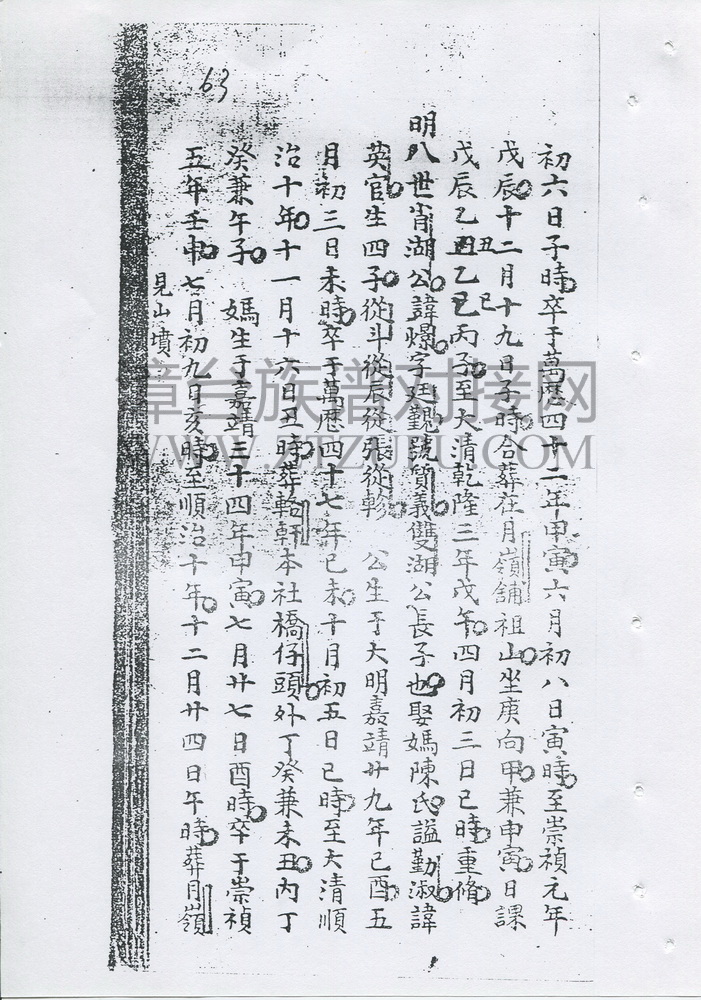 63
初六日子時卒于萬歷四十二年甲寅六月初八日寅時至崇禎元年
戊辰十二月十九日子時合葬在月嶺舖祖山坐庚向甲兼申寅日課
戊辰乙丑丑乙巳巳丙子至大清乾隆三年戊午四月初三日巳時重脩
明八世肖湖公諱爆字廷觐號質義雙湖公長子也娶媽陳氏謚勤淑諱
英官生四子從斗從辰從張從軫 公生于大明嘉靖廿九年已酉五
月初三日未時卒于萬歷四十七年已未十月初五日已時至大清順
治十年十一月十六日丑時葬輪軒本社橋仔頭外丁癸兼未丑內丁
癸兼午子 媽生于嘉靖三十四年甲寅七月廿七日酉時卒于崇禎
五年壬申七月初九日亥時至順治十年十二月廿四日午時葬月嶺
見山墳
章台族谱对接网
WWW.ZTZUPU.COM